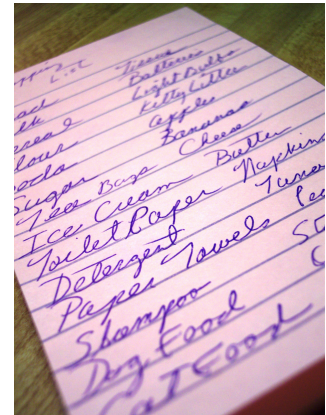 List
ead
lk
ereal
lour
Sugar
Tea Bags
Ice Cream
Toilet Paper
Detergent
Paper Towels
Shampoo
Dog Food
Cat Food
Tissue
Batteries
Light Bulbs
Kitty Litter
apples
Bananas
Cheese
Butter
Napkins
Tuna